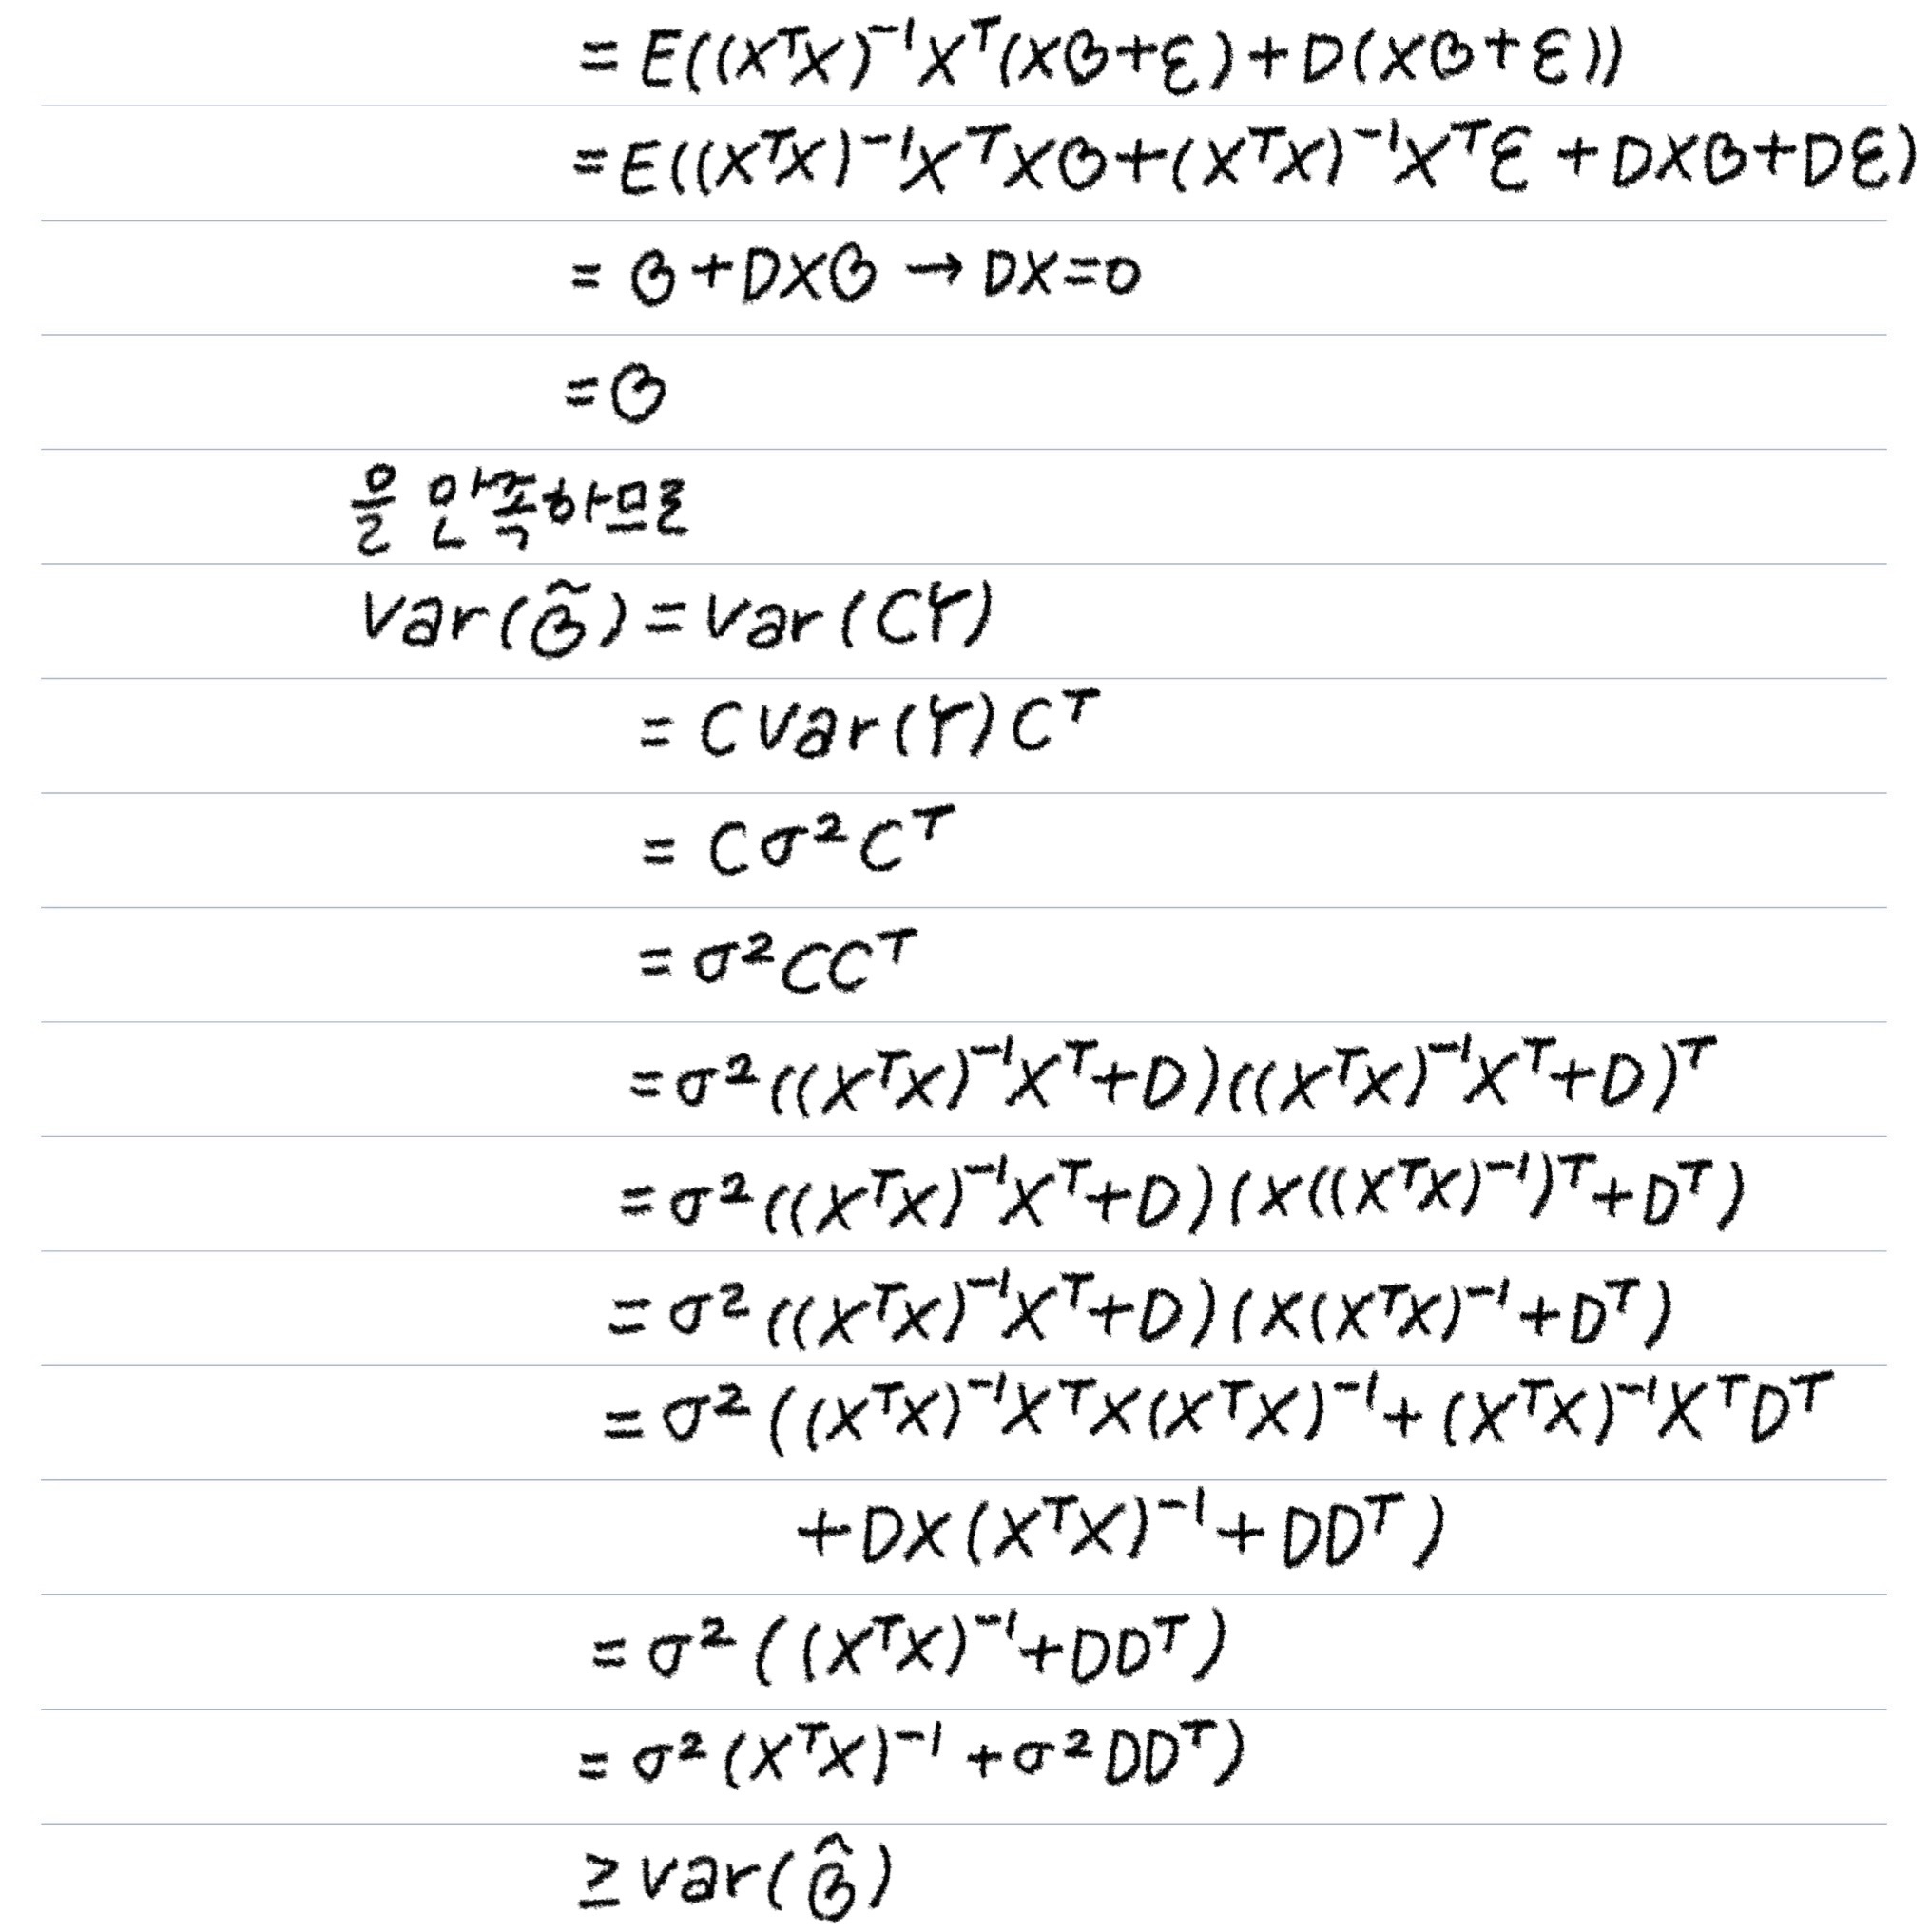 = E((XᵀX)⁻¹Xᵀ(Xβ+ε)+D(Xβ+ε))
= E((XᵀX)⁻¹XᵀXβ+(XᵀX)⁻¹Xᵀε+DXβ+Dε)
= β+DXβ → DX=0
= β
을 만족하므로
Var(β̃) = Var(CY)
= CVar(Y)Cᵀ
= Cσ²Cᵀ
= σ²CCᵀ
= σ²((XᵀX)⁻¹Xᵀ+D)((XᵀX)⁻¹Xᵀ+D)ᵀ
= σ²((XᵀX)⁻¹Xᵀ+D)(X((XᵀX)⁻¹)ᵀ+Dᵀ)
= σ²((XᵀX)⁻¹Xᵀ+D)(X(XᵀX)⁻¹+Dᵀ)
= σ²((XᵀX)⁻¹XᵀX(XᵀX)⁻¹+(XᵀX)⁻¹XᵀDᵀ
+DX(XᵀX)⁻¹+DDᵀ)
= σ²((XᵀX)⁻¹+DDᵀ)
= σ²(XᵀX)⁻¹+σ²DDᵀ)
≥ Var(β̂)